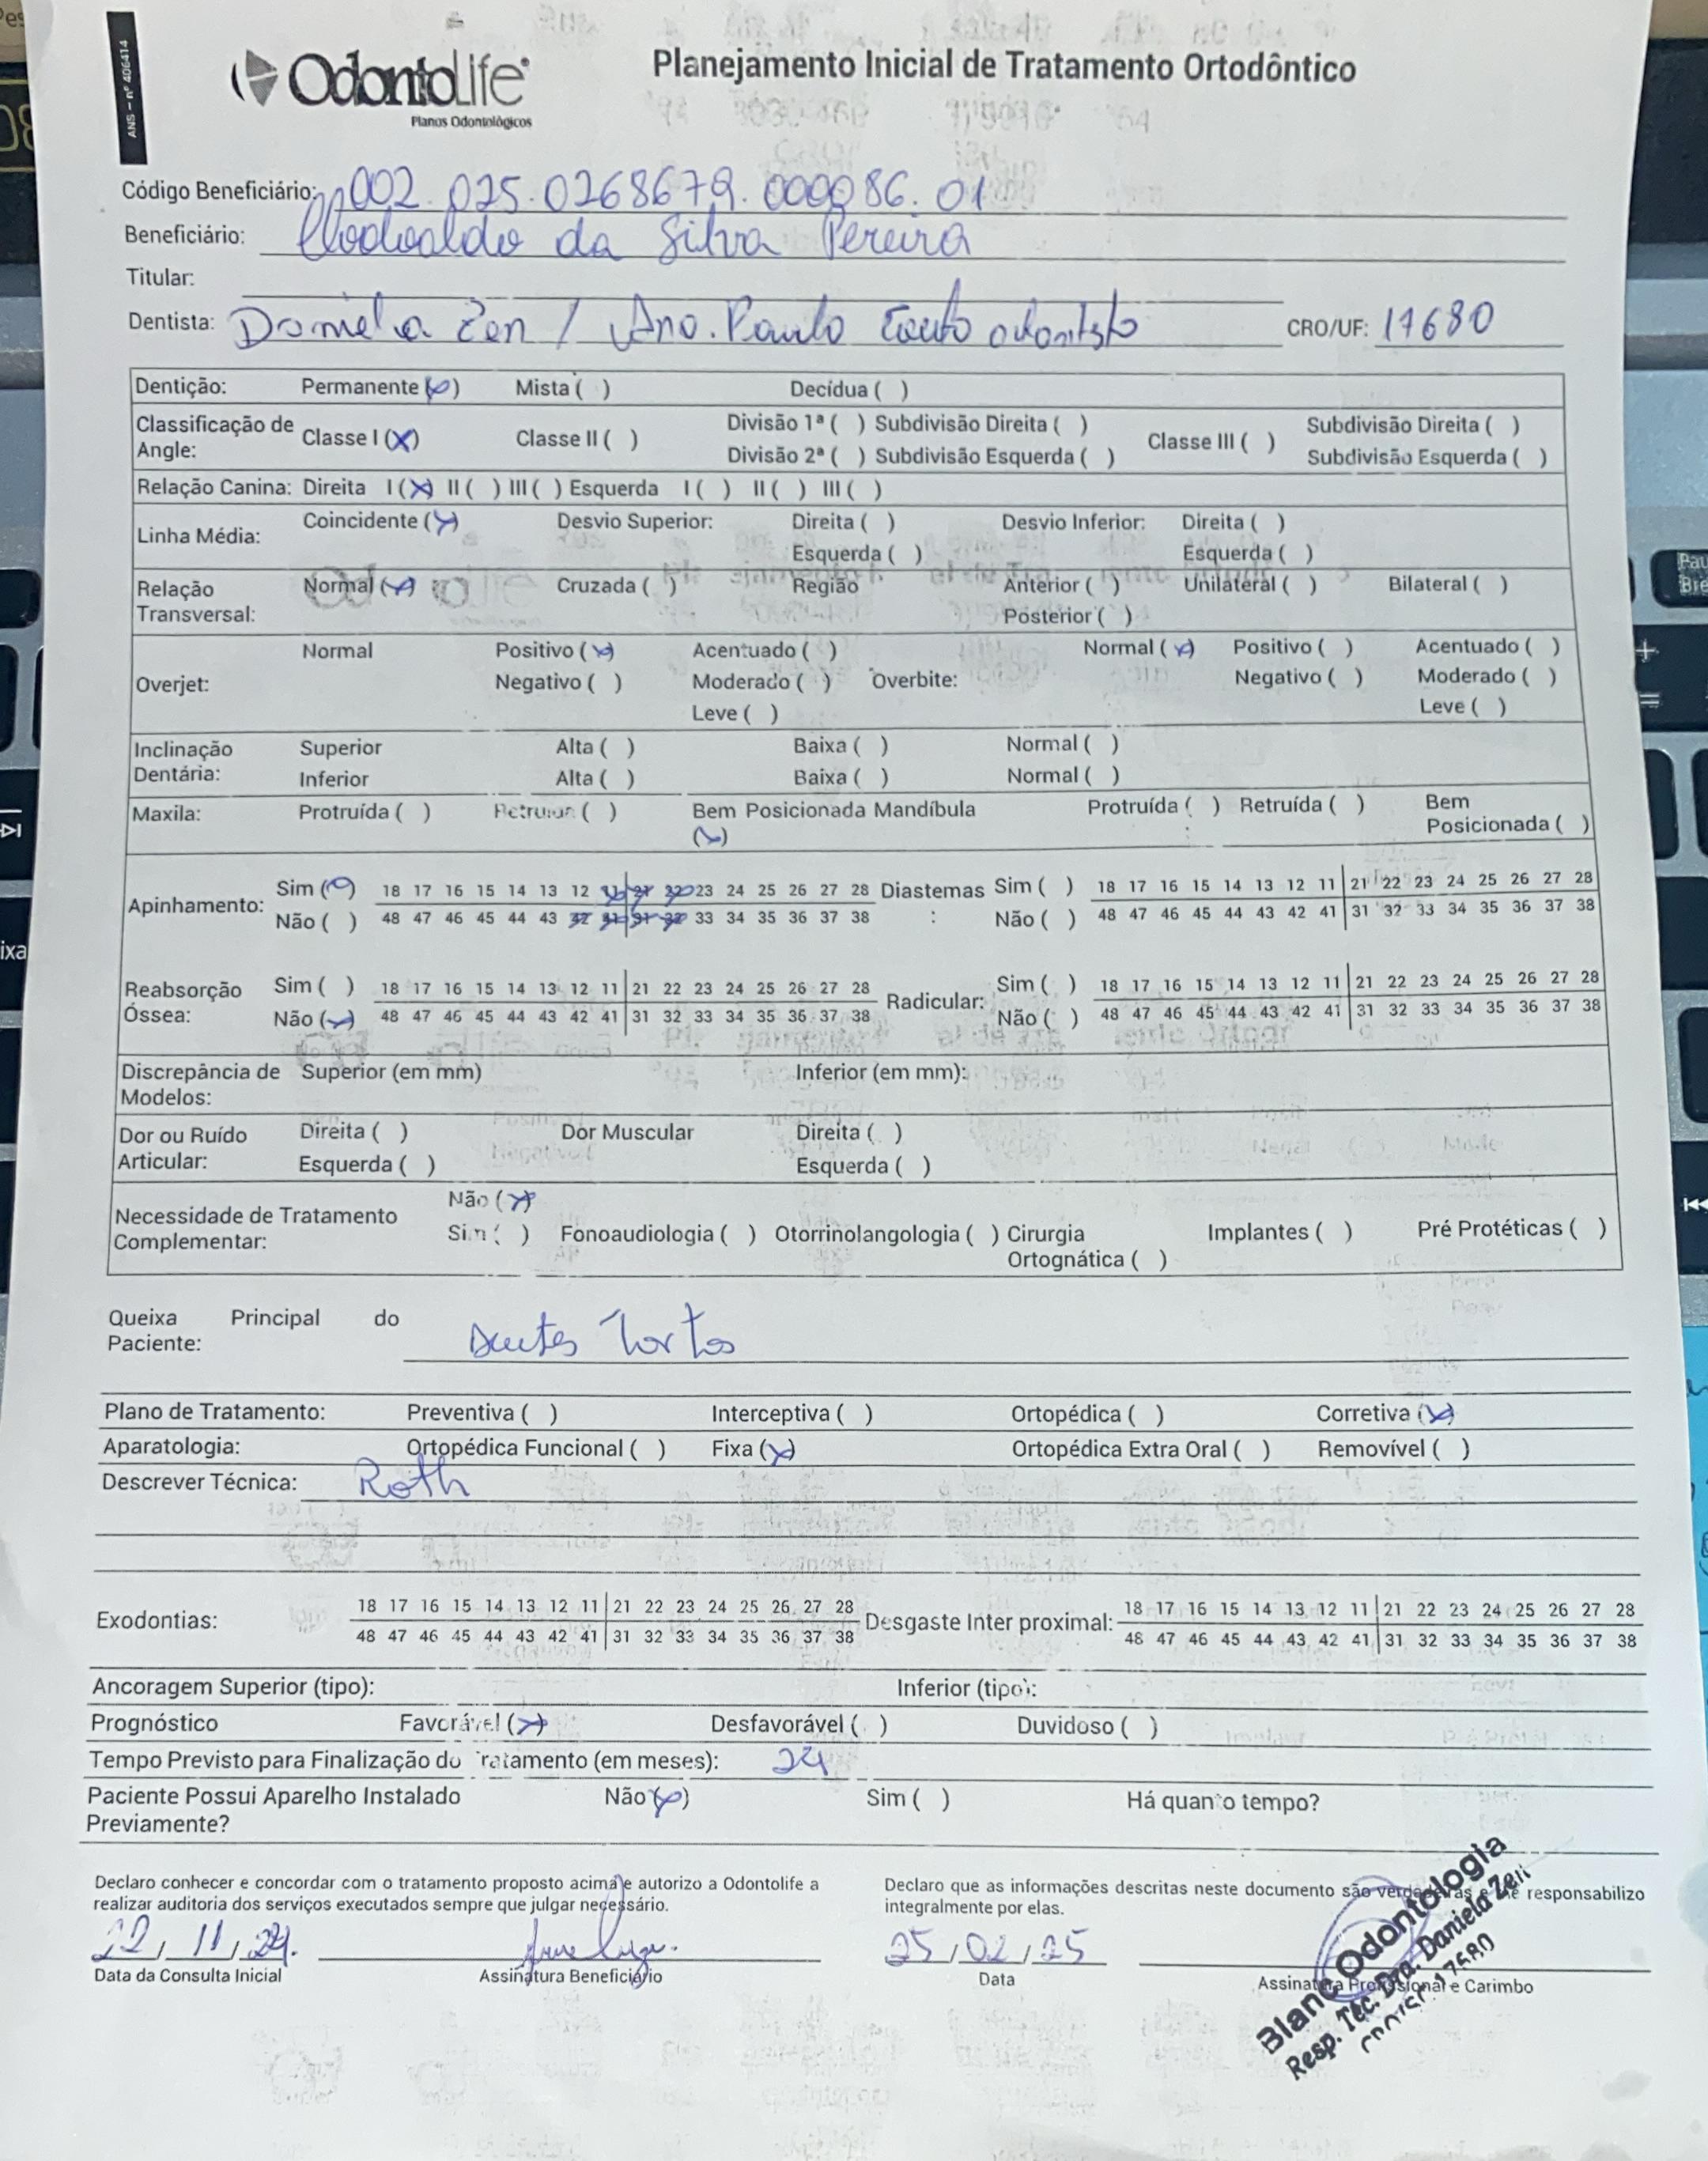 ANS – nº 406414
OdontoLife
Planos Odontológicos
Planejamento Inicial de Tratamento Ortodôntico
Código Beneficiário: 002.025.0268679.000086.01
Beneficiário: Clodoaldo da Silva Pereira
Titular:
Dentista: Daniela Zen / Ana. Paula Couto odontisto CRO/UF: 17680
Dentição: Permanente (x) Mista ( ) Decídua ( )
Classificação de Angle: Classe I (x) Classe II ( ) Divisão 1ª ( ) Subdivisão Direita ( ) Classe III ( ) Subdivisão Direita ( )
Divisão 2ª ( ) Subdivisão Esquerda ( ) Subdivisão Esquerda ( )
Relação Canina: Direita I (x) II ( ) III ( ) Esquerda I ( ) II ( ) III ( )
Linha Média: Coincidente (x) Desvio Superior: Direita ( ) Desvio Inferior: Direita ( )
Esquerda ( ) Esquerda ( )
Relação Transversal: Normal (x) Cruzada ( ) Região Anterior ( ) Unilateral ( ) Bilateral ( )
Posterior ( )
Overjet: Normal Positivo (x) Acentuado ( ) Overbite: Normal (x) Positivo ( ) Acentuado ( )
Negativo ( ) Moderado ( ) Negativo ( ) Moderado ( )
Leve ( ) Leve ( )
Inclinação Dentária: Superior Alta ( ) Baixa ( ) Normal ( )
Inferior Alta ( ) Baixa ( ) Normal ( )
Maxila: Protruída ( ) Retruída ( ) Bem Posicionada (x) Mandíbula Protruída ( ) Retruída ( ) Bem Posicionada ( )
Apinhamento: Sim (x) 18 17 16 15 14 13 12 11 21 22 23 24 25 26 27 28 Diastemas : Sim ( ) 18 17 16 15 14 13 12 11 21 22 23 24 25 26 27 28
Não ( ) 48 47 46 45 44 43 42 41 31 32 33 34 35 36 37 38 Não ( ) 48 47 46 45 44 43 42 41 31 32 33 34 35 36 37 38
Reabsorção Óssea: Sim ( ) 18 17 16 15 14 13 12 11 21 22 23 24 25 26 27 28 Radicular: Sim ( ) 18 17 16 15 14 13 12 11 21 22 23 24 25 26 27 28
Não (x) 48 47 46 45 44 43 42 41 31 32 33 34 35 36 37 38 Não ( ) 48 47 46 45 44 43 42 41 31 32 33 34 35 36 37 38
Discrepância de Modelos: Superior (em mm) Inferior (em mm):
Dor ou Ruído Articular: Direita ( ) Dor Muscular Direita ( )
Esquerda ( ) Esquerda ( )
Necessidade de Tratamento Complementar: Não (x)
Sim ( ) Fonoaudiologia ( ) Otorrinolangologia ( ) Cirurgia Ortognática ( ) Implantes ( ) Pré Protéticas ( )
Queixa Principal do Paciente: Dentes Tortos
Plano de Tratamento: Preventiva ( ) Interceptiva ( ) Ortopédica ( ) Corretiva (x)
Aparatologia: Ortopédica Funcional ( ) Fixa (x) Ortopédica Extra Oral ( ) Removível ( )
Descrever Técnica: Roth
Exodontias: 18 17 16 15 14 13 12 11 21 22 23 24 25 26 27 28 Desgaste Inter proximal: 18 17 16 15 14 13 12 11 21 22 23 24 25 26 27 28
48 47 46 45 44 43 42 41 31 32 33 34 35 36 37 38 48 47 46 45 44 43 42 41 31 32 33 34 35 36 37 38
Ancoragem Superior (tipo): Inferior (tipo):
Prognóstico Favorável (x) Desfavorável ( ) Duvidoso ( )
Tempo Previsto para Finalização do Tratamento (em meses): 24
Paciente Possui Aparelho Instalado Previamente? Não (x) Sim ( ) Há quanto tempo?
Declaro conhecer e concordar com o tratamento proposto acima e autorizo a Odontolife a
realizar auditoria dos serviços executados sempre que julgar necessário.
Declaro que as informações descritas neste documento são verdadeiras e me responsabilizo
integralmente por elas.
22/11/24. 25/02/25
Data da Consulta Inicial Assinatura Beneficiário Data Assinatura Profissional e Carimbo
Blanc Odontologia
Resp. Téc. Dra. Daniela Zen
CRO/SC 17680